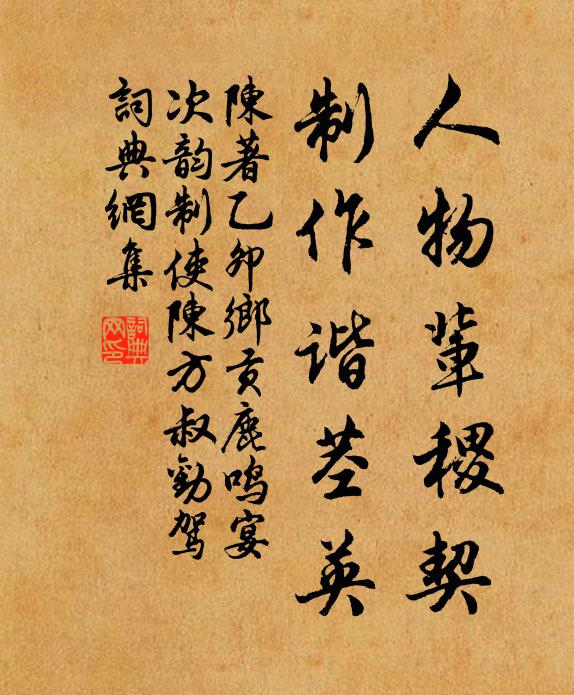 人物輩稷契
制作谐茎英
陳著乙卯鄉貢鹿鳴宴
次韵制使陳方叔勸駕
詞典網集
詞典网印